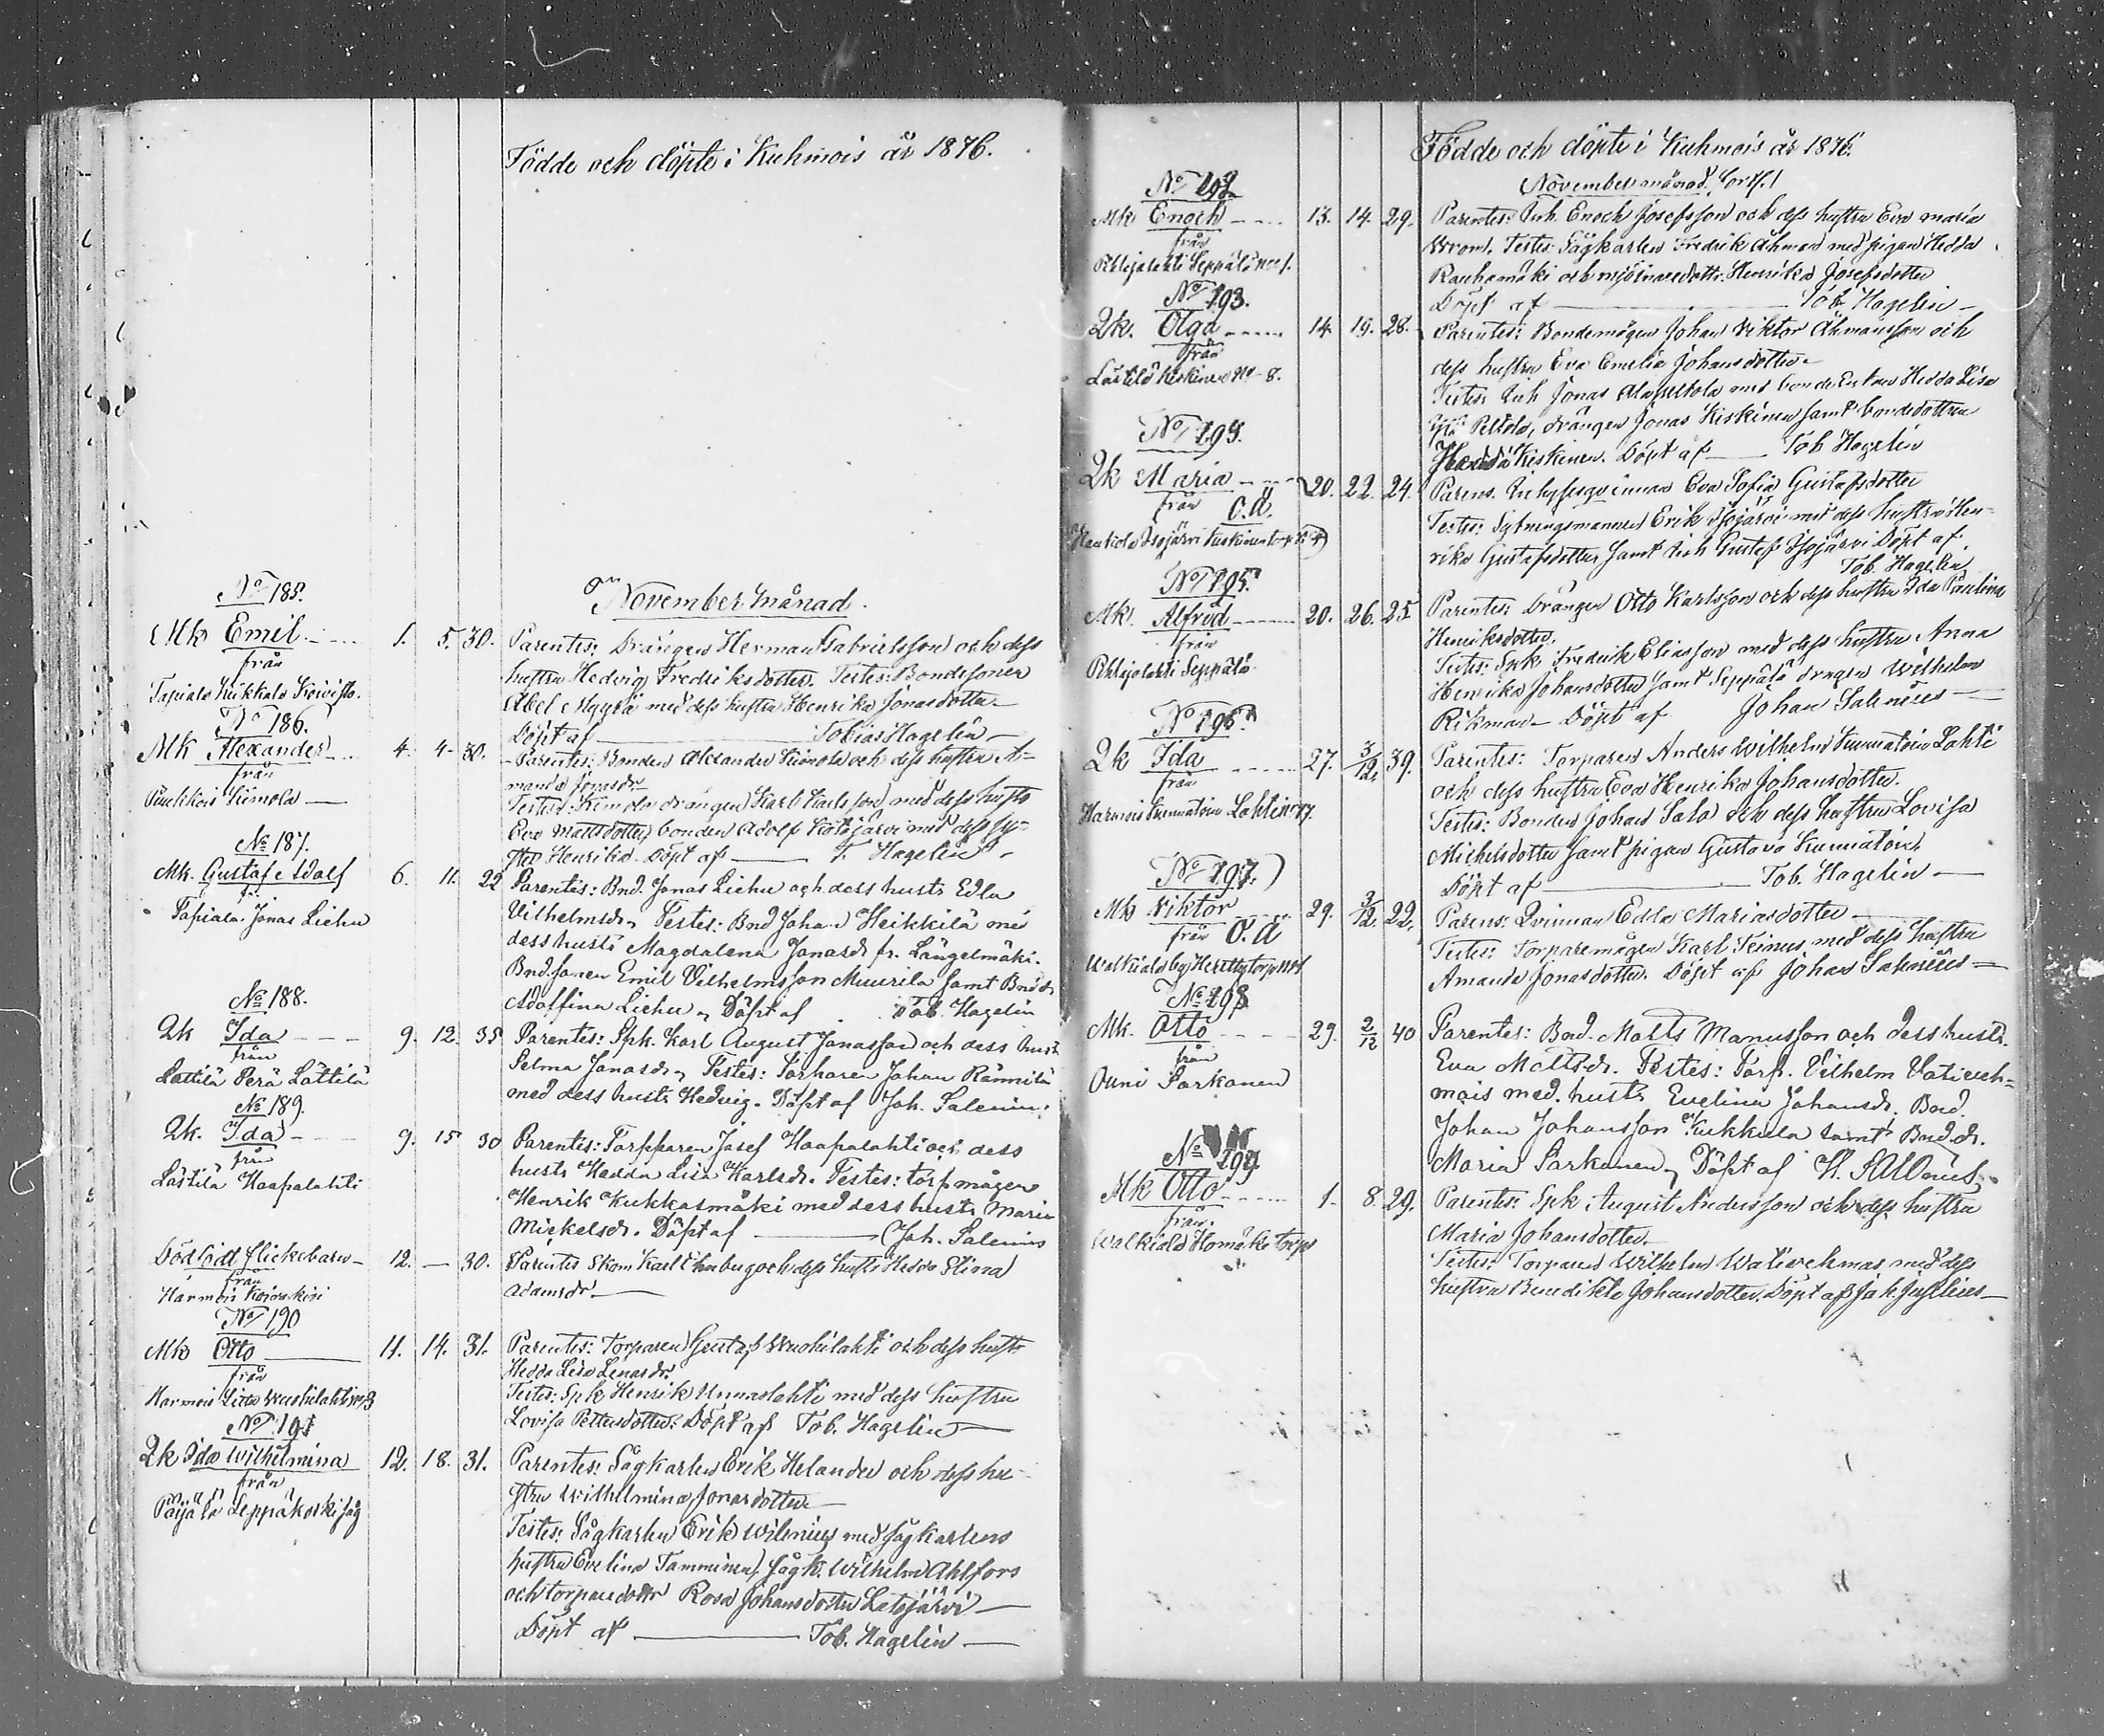 Födde och döpte i Kuhmois år 1876.
November månad.
No 185.
Mk Emil 1. 5. 30.
från
Tapiala Kukkala Koivisto.
Parentes: Drängen Herman Gabrielsson och dess
hustru Hedvig Fredriksdotter. Testes: Bondesonen
Abel Myyrä med dess hustru Henrika Jonasdotter
Döpt af Tobias Hagelin
No 186.
Mk Alexander 4. 4. 30.
från
Puukkois Kimola
Parentes: Bonden Alexander Kimola och dess hustru A-
manda Jonasdr
Testes: Kimola drängen Karl Karlsson med dess hustr
Eva Mattsdotter, bonden Adolf med dess sy-
ster Henrika. Döpt af T. Hagelin
No 187.
Mk. Gustaf Adolf 6. 11. 22
fr.
Tapiala Jonas Liehu
Parentes: Bnd. Jonas Liehu och dess hustr Edla
Vilhelmsdr. Testes: Bnd Johan Heikkilä me
dess hustr Magdalena Jonasdr fr. Längelmäki.
Bnd.sonen Emil Vilhelmsson Muurila samt Bnd.dr
Adolfina Liehu. Döpt af Tob. Hagelin
No 188.
Qk Ida 9. 12. 35
från
Lästilä Perä Lästilä
Parentes: Spk. Karl August Jonasson och dess hust
Selma Jonasdr. Testes: Torparen Johan
med dess hustr Hedvig. Döpt af Joh. Salenius
No 189.
Qk. Ida 9. 15 30
från
Lästilä Haapalahti
Parentes: Torpparen Josef Haapalahti och dess
hustr Hedda Lisa Karlsdr. Testes: torpmågen
Henrik Kukkasmäki med dess hustr Maria
Mickelsdr. Döpt af Joh. Salenius
Dödfödt flickebarn 12. — 30.
från
Harmois
Parentes Skom. Karl och dess hustr Hedda Stina
Adamsdr
No 190
Mk Otto 11. 14. 31.
från
Harmois
Parentes: Torparen Gustaf och dess hustr
Hedda Lisa Lenasdr.
Testes: Spk Henrik Unnaslahti med dess hustru
Lovisa Pettersdotter. Döpt af Tob. Hagelin
No 191
Qk Ida Wilhelmina 12. 18. 31.
från
Päijälä Leppäkoski såg
Parentes: Sågkarlen Erik Helander och dess hu-
stru Wilhelmina Jonasdotter
Testes: Sågkarlen Erik Wilenius med sågkarlens
hustru Evelina Tamminen, Sågk. Wilhelm Ahlfors
och torparedottr Rosa Johansdotter Latojärvi
Döpt af Tob. Hagelin
Födde och döpte i Kuhmois år 1876.
November månad. (forts.)
No 192
Mk Enoch 13. 14. 29.
från
Pihlajalahti Seppälä No 1.
Parentes: Inh. Enoch Josefsson och dess hustru Eva Maria
Testes: Sågkarlen Fredrik Åhman med pigan Hedda
Rauhamäki och mjölnaredottr. Henrika Josefsdotter
Döpt af Tob. Hagelin
No 193.
Qk. Olga 14. 19. 28.
från
Lästilä Keskinen No 8.
Parentes: Bondemågen Johan Viktor Åhmansson och
dess hustru Eva Emelia Johansdotter
Testes: Inh Jonas med bondeenkan Hedda Lisa
Peltola, drängen Jonas Kiskinen samt bondedottren
Hedda Kiskinen. Döpt af Tob Hagelin
No 194.
Qk Maria 20. 22. 24.
från O.Ä.
Isojärvi
Parens. Inhyseqvinnan Eva Sofia Gustafsdotter
Testes: Sytningsmannen Erik Isojärvi med dess hustru Hen-
rika Gustafsdotter samt Inh Gustaf Isojärvi Döpt af
Tob. Hagelin
No 195.
Mk. Alfred 20. 26. 25
från
Pihlajalahti Seppälä
Parentes Drängen Otto Karlsson och dess hustru Ida Paulina
Henriksdotter.
Testes: Spk Fredrik Eliasson med dess hustru Anna
Henrika Johansdotter samt Seppälä drängen Wilhelm
Rikman Döpt af Johan Salenius
No 196
Qk Ida 27. 3/12. 39.
från
Harmois Kuumatoin Lahti No 17.
Parentes: Torparen Anders Wilhelm Kuumatoin Lahti
och dess hustru Eva Henrika Johansdotter.
Testes: Bonden Johan Salo och dess hustru Lovisa
Mickelsdotter samt pigan Gustava Kuumatoin,
Döpt af Tob. Hagelin
No 197.
Mk Viktor 29. 3/12. 22.
från O.Ä
Walkiala by
Parens: Qvinnan Edla Mariasdotter
Testes: Torparemågen Karl Keinus med dess hustru
Amanda Jonasdotter. Döpt af Johan Salenius
No 198
Mk. Otto 29. 2/12 40
från
Ouni Sarkanen
Parentes: Bnd. Matts Manusson och dess hustr.
Eva Mattsdr. Testes: Torp. Vilhelm Vativeh-
mais med hustr Evelina Johansdr. Bnd.
Johan Johansson Kukkula samt Bnd.dr.
Maria Sarkanen. Döpt af
No 199
Mk Otto 1. 8. 29.
från.
Walkiala Homäki torp
Parentes: Spk August Andersson och dess hustru
Maria Johansdotter
Testes: Torparen Wilhelm Wativehmas med dess
hustru Benedikta Johansdotter. Döpt af Joh. Juselius